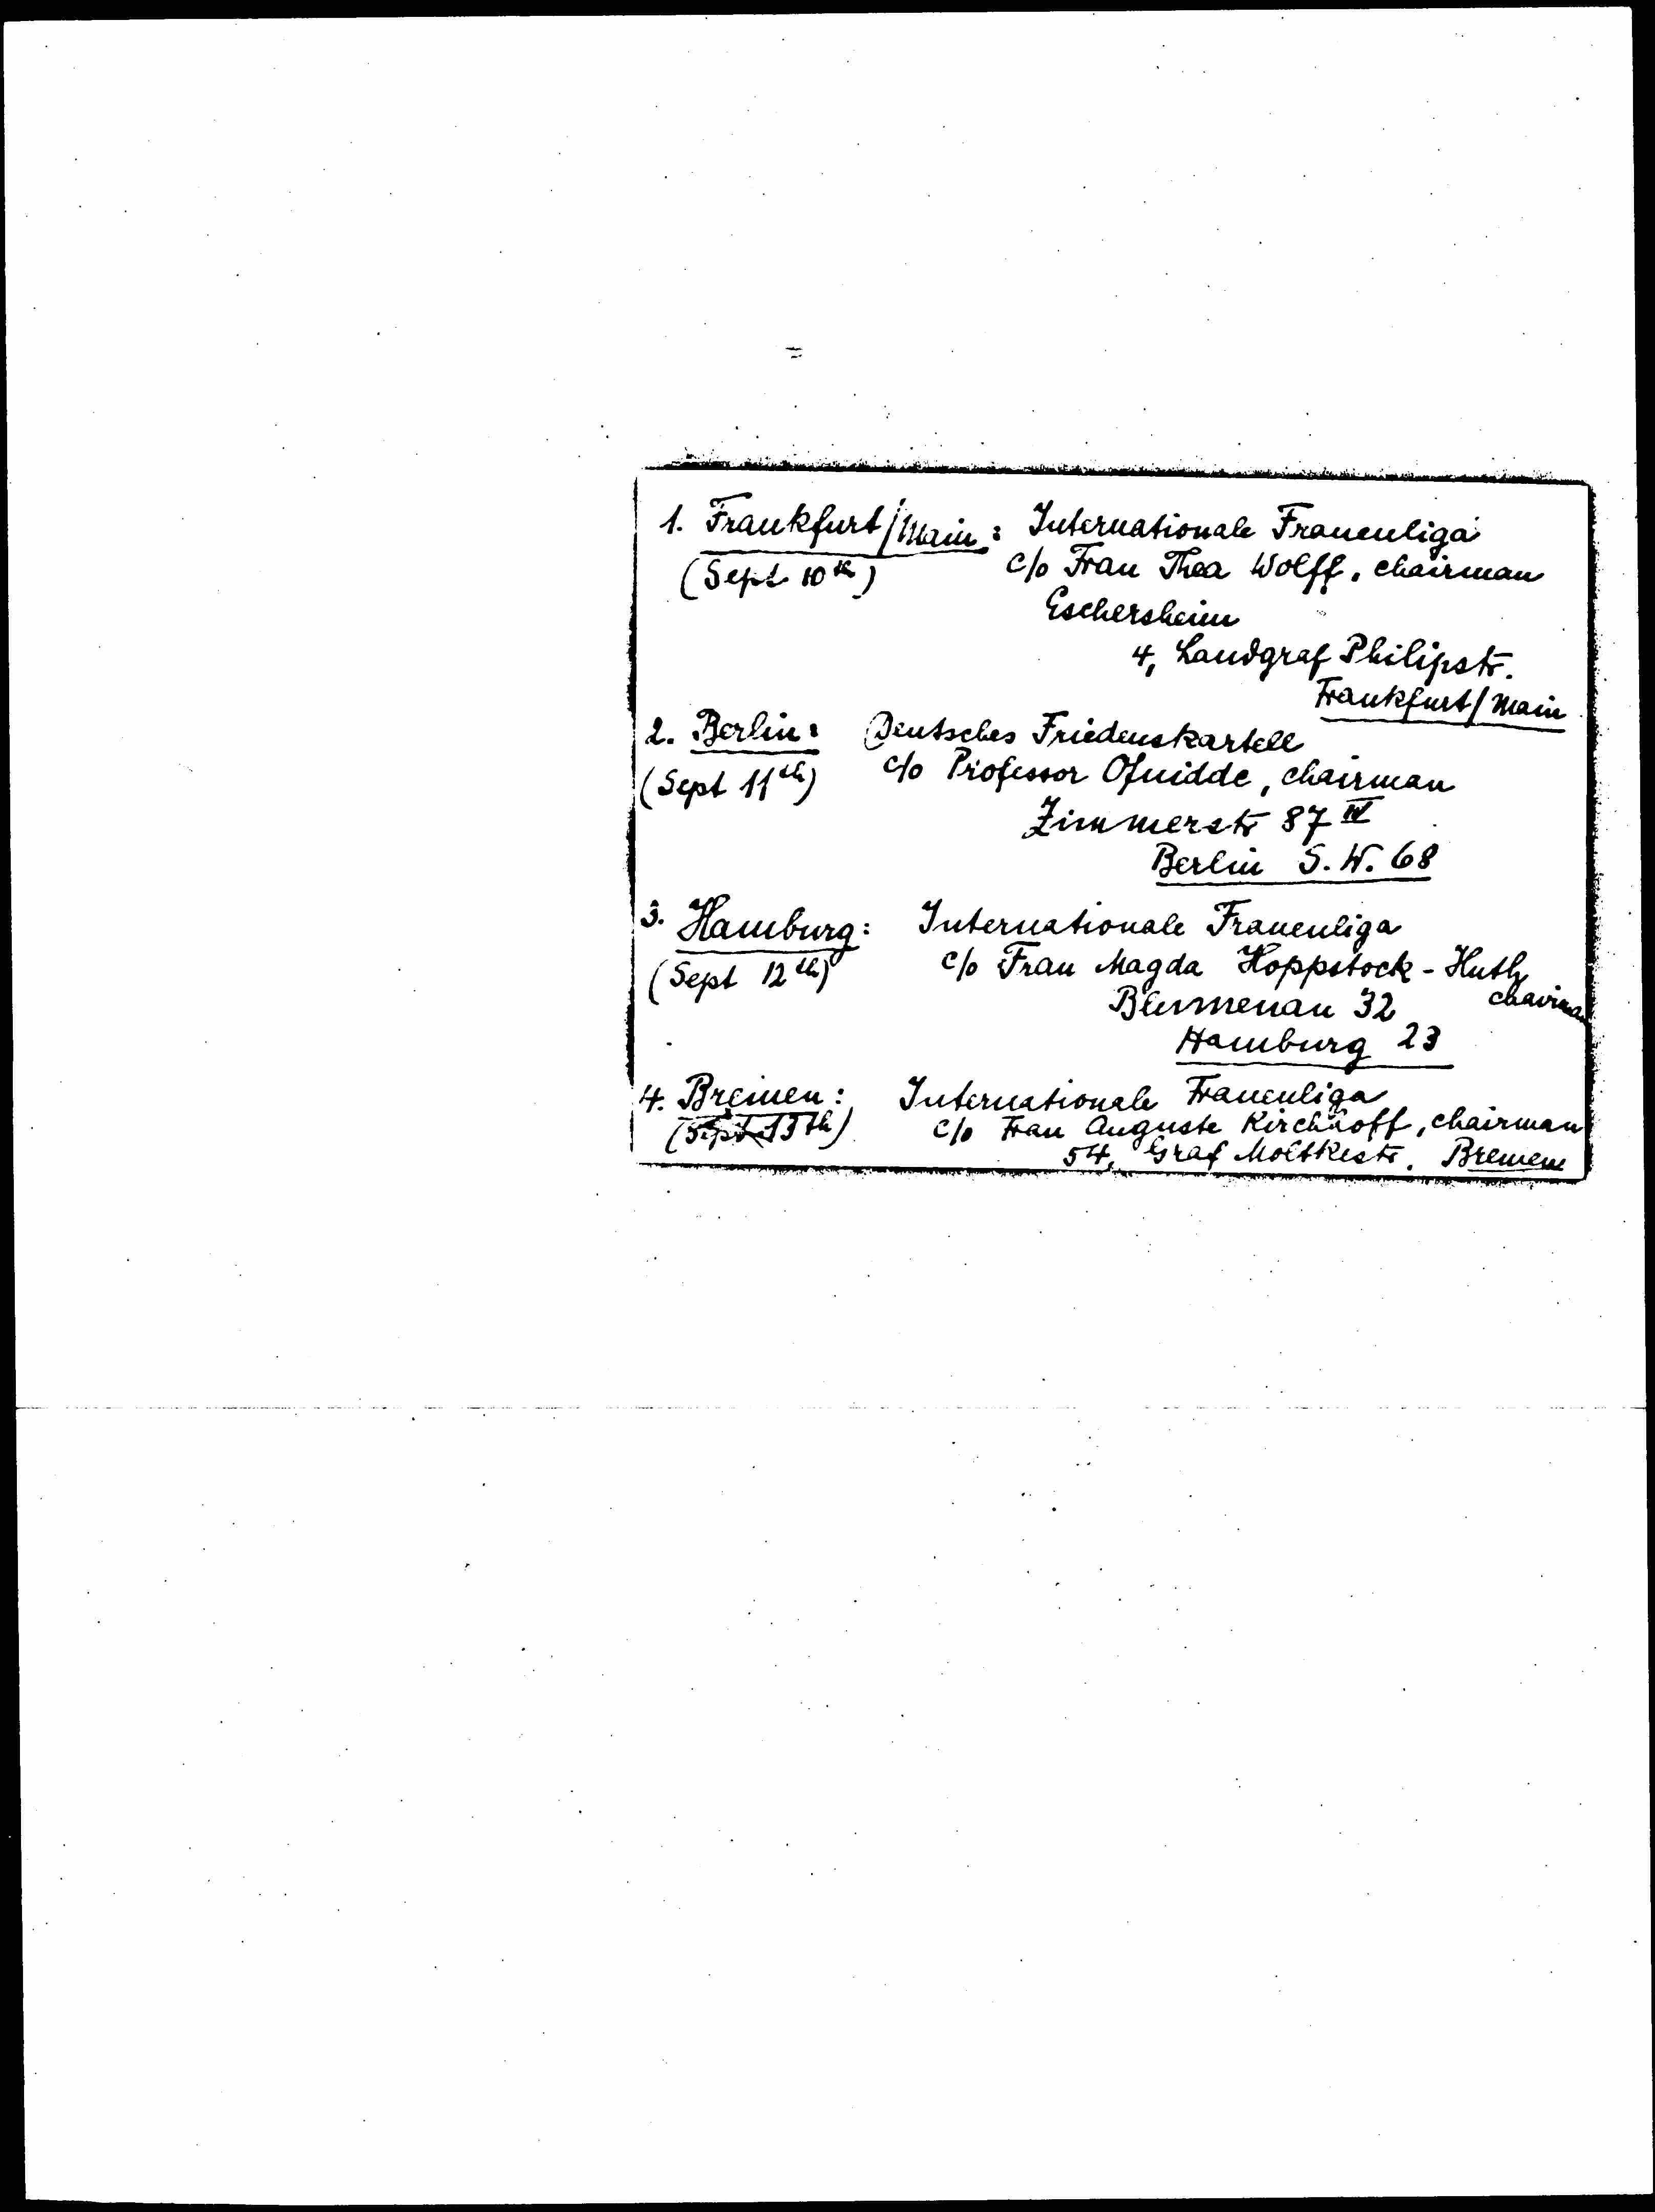 1. Frankfurt/Main: Internationale Frauenliga
(Sept 10th) c/o Frau Thea Wolff, chairman
Eschersheim
4, Landgraf Philipstr.
Frankfurt/Main
2. Berlin: Deutsches Friedenskartell
(Sept 11th) c/o Professor Quidde, chairman
Zimmerstr 87 IV
Berlin S.W. 68
3. Hamburg: Internationale Frauenliga
(Sept 12th) c/o Frau Magda Hoppstock-Huth
Blumenau 32 chairman
Hamburg 23
4. Bremen: Internationale Frauenliga
(Sept 13th) c/o Frau Auguste Kirchhoff, chairman
54, Graf Moltkestr. Bremen